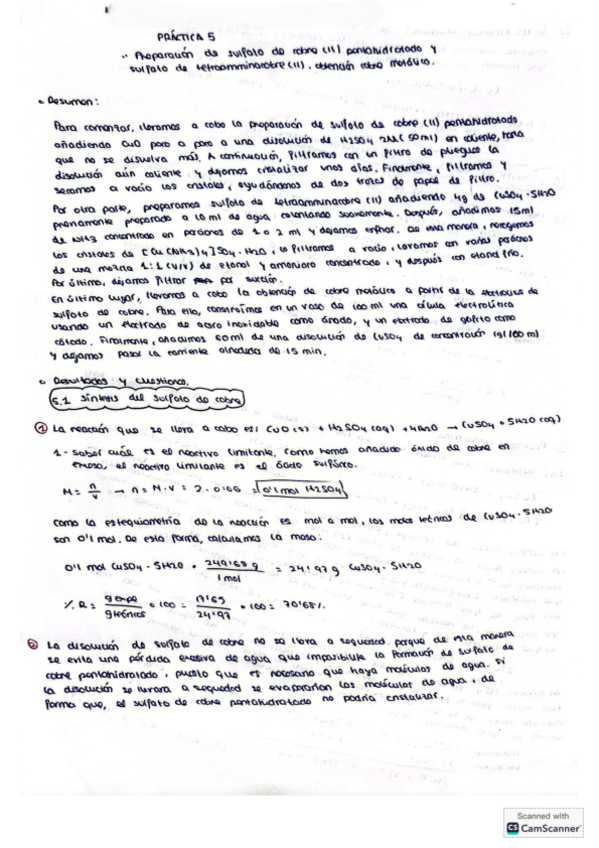 PRÁCTICA 5
- Preparación de sulfato de cobre (II) pentahidratado y
sulfato de tetraamminacobre (II). obtención cobre metálico.
• Resumen:
Para comenzar, llevamos a cabo la preparación de sulfato de cobre (II) pentahidratado
añadiendo CuO poco a poco a una disolución de H2SO4 2M (50ml) en caliente, hasta
que no se disuelva más. A continuación, filtramos con un filtro de pliegues la
disolución aún caliente y dejamos cristalizar unos días. Finalmente, filtramos y
secamos a vacío los cristales, ayudándonos de dos trozos de papel de filtro.
Por otra parte, preparamos sulfato de tetraamminacobre (II) añadiendo 4g de CuSO4·5H2O
previamente preparado a 10 ml de agua, calentando suavemente. Después, añadimos 15ml
de NH3 concentrado en porciones de 1 o 2 ml y dejamos enfriar. De esta manera, recogemos
los cristales de [Cu(NH3)4]SO4·H2O, lo filtramos a vacío, lavamos con varias porciones
de una mezcla 1:1 (v/v) de etanol y amoniaco concentrado, y después con etanol frío.
Por último, dejamos filtrar por succión.
En último lugar, llevamos a cabo la obtención de cobre metálico a partir de la electrólisis de
sulfato de cobre. Para ello, construimos en un vaso de 100 ml una célula electrolítica
usando un electrodo de acero inoxidable como ánodo, y un electrodo de grafito como
cátodo. Finalmente, añadimos 60ml de una disolución de CuSO4 de concentración (g/100ml)
y dejamos pasar la corriente alrededor de 15 min.
• Resultados y cuestiones.
5.1 Síntesis del sulfato de cobre
① La reacción que se lleva a cabo es: CuO(s) + H2SO4(aq) + 4H2O → CuSO4·5H2O(aq)
1 - Saber cuál es el reactivo limitante. Como hemos añadido óxido de cobre en
exceso, el reactivo limitante es el ácido sulfúrico.
M = n/v → n = M·V = 2·0'05 = 0'1 mol H2SO4
Como la estequiometría de la reacción es mol a mol, los moles teóricos de CuSO4·5H2O
son 0'1 mol. De esta forma, calculamos la masa:
0'1 mol CuSO4·5H2O · 249'68 g / 1 mol = 24'97 g CuSO4·5H2O
% R = g expe / g teóricos · 100 = 17'65 / 24'97 · 100 = 70'68%.
② La disolución de sulfato de cobre no se lleva a sequedad porque de esta manera
se evita una pérdida excesiva de agua que imposibilite la formación de sulfato de
cobre pentahidratado, puesto que es necesario que haya moléculas de agua. Si
la disolución se llevara a sequedad se evaporarían las moléculas de agua, de
forma que, el sulfato de cobre pentahidratado no podría cristalizar.
Scanned with
CS CamScanner